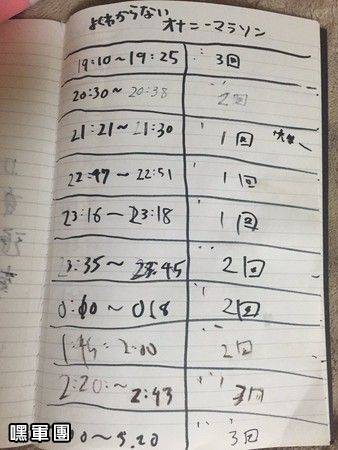 よくわからない
オナニーマラソン
19:10〜19:25 3回
20:30〜20:38 2回
21:21〜21:30 1回
22:47〜22:51 1回
23:16〜23:18 1回
23:35〜23:45 2回
0:10〜0:18 2回
1:45〜2:00 2回
2:20:〜2:43 3回
〜5.20 3回
嘿軍團